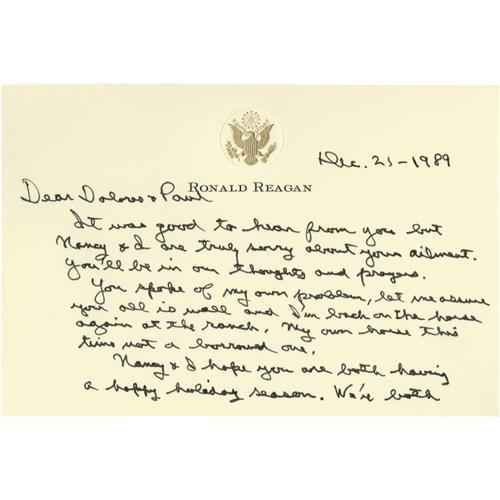 Dec. 25-1989
RONALD REAGAN
Dear Dolores & Paul
It was good to hear from you but
Nancy & I are truly sorry about your ailment.
You'll be in our thoughts and prayers.
You spoke of my own problem, let me assure
you all is well and I'm back on the horse
again at the ranch. My own horse this
time not a borrowed one.
Nancy & I hope you are both having
a happy holiday season. We're both